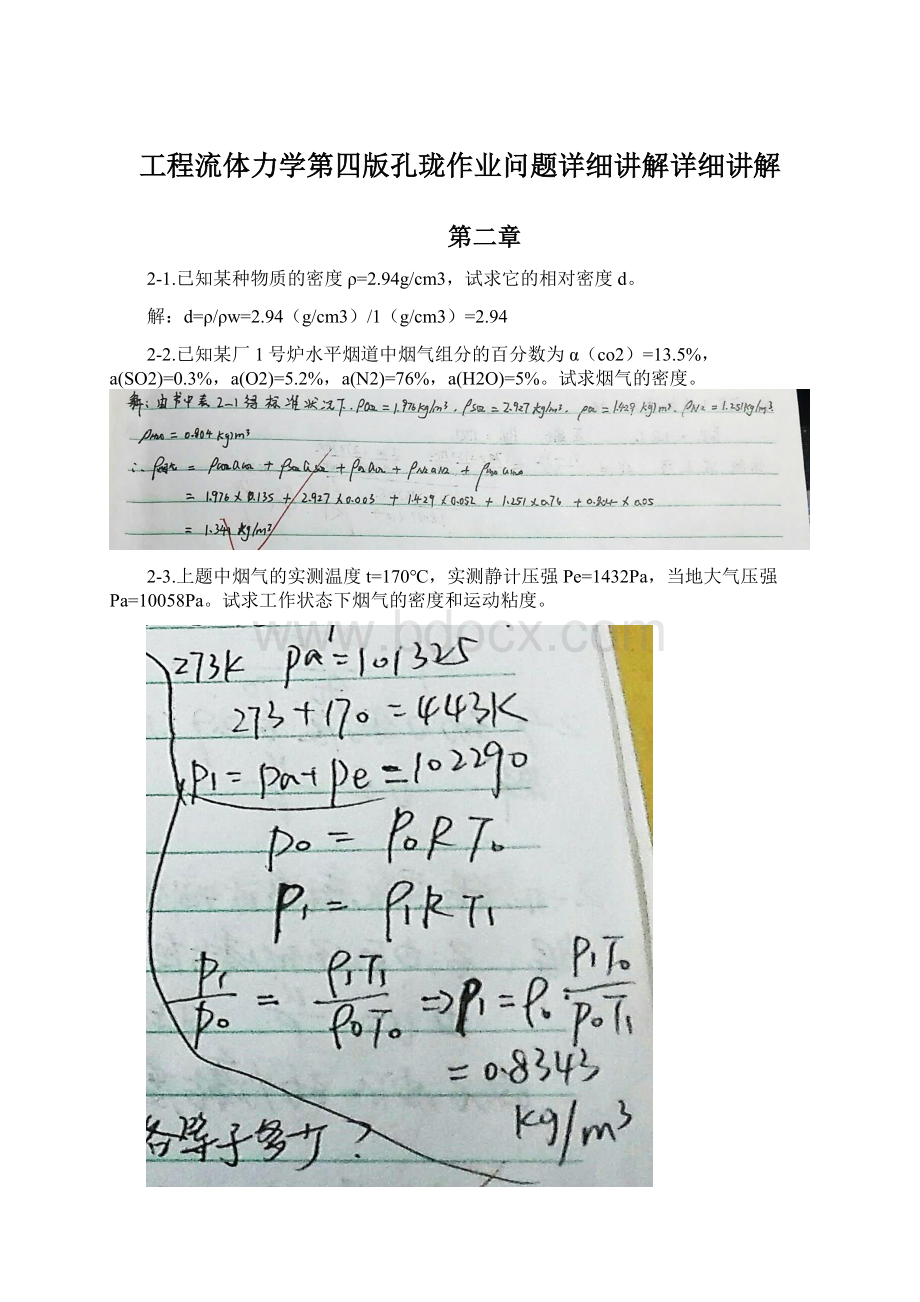 工程流体力学第四版孔珑作业问题详细讲解详细讲解
第二章
2-1.已知某种物质的密度ρ=2.94g/cm3，试求它的相对密度d。
解：d=ρ/ρw=2.94（g/cm3）/1（g/cm3）=2.94
2-2.已知某厂1号炉水平烟道中烟气组分的百分数为α（co2）=13.5%，
a(SO2)=0.3%，a(O2)=5.2%，a(N2)=76%，a(H2O)=5%。试求烟气的密度。
解：由书中表2-1得标准状况下，ρCO2=1.976kg/m³，ρSO2=2.927kg/m³，ρO2=1.429kg/m³，ρN2=1.251kg/m³
ρH2O=0.804kg/m³
∴ρ烟气=ρCO2αCO2+ρSO2αSO2+ρO2αO2+ρN2αN2+ρH2OαH2O
=1.976×0.135+2.927×0.003+1.429×0.052+1.251×0.76+0.804×0.05
=1.341kg/m³
2-3.上题中烟气的实测温度t=170℃，实测静计压强Pe=1432Pa，当地大气压强
Pa=10058Pa。试求工作状态下烟气的密度和运动粘度。
273K pa'=101325
273+170=443K
p1=pa+pe=102290
p0=ρ0RT0
p1=ρ1RT1
p1/p0=ρ1T1/ρ0T0⇒ρ1=ρ0·p1T0/p0T1
=0.8343
kg/m³
各等于多少？
www.bdocx.com